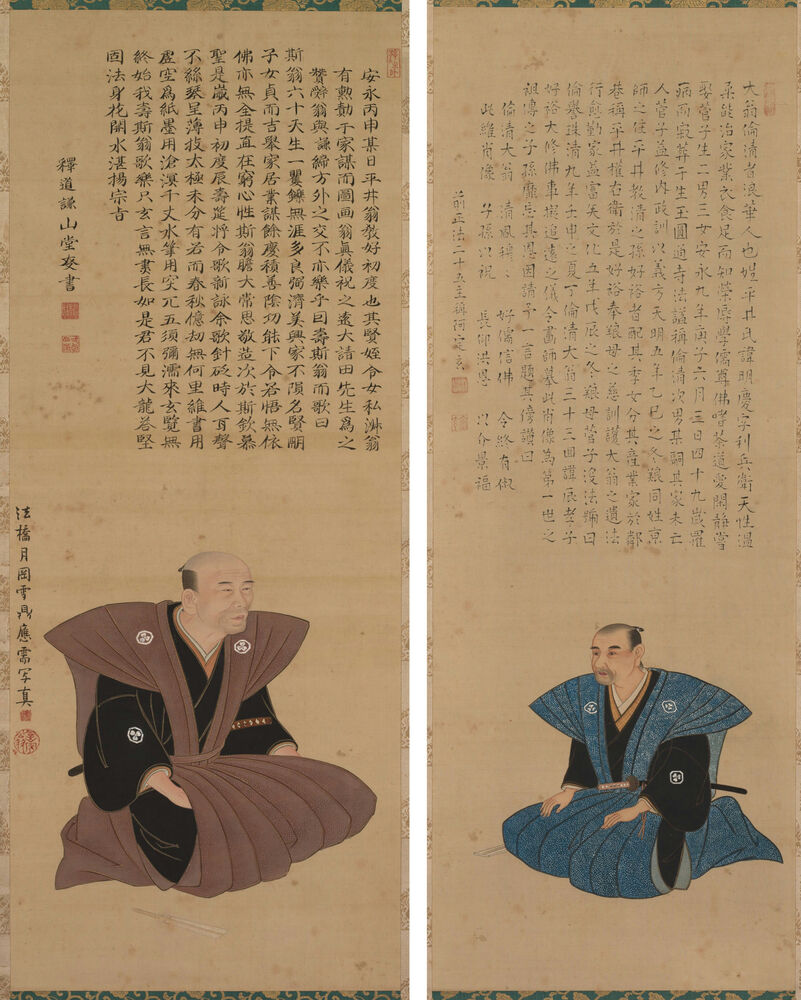 安永丙申某日平井翁敎好初度也其賢姪令女私淑翁
有勲勤于家謀而圖画翁眞儀祝之遠大請田先生爲之
贊辭翁與謙締方外之交不亦樂乎曰壽斯翁而歌曰
斯翁六十天生一矍鑠無涯多良弼濟美興家不隕名賢朋
子女貞而吉聚家居業謀餘慶積善陰功能下令若悟無依
佛亦無全提直在窮心性斯翁膽大常思敬造次於斯欽慕
聖是歲丙申初度辰壽筵將令歌新詠余歌針砭時人耳聲
不絲琴呈薄技太極未分有若而春秋億劫無何里維書用
虛空爲紙墨用滄溟千丈水筆用突兀五須彌濡來玄覧無
終始我壽斯翁歌樂只玄言無盡長如是君不見大龍答堅
固法身花開水湛揚宗旨
釋道謙山堂書
法橋月岡雪鼎應需写真
大翁倫清者浪華人也姓平井氏諱明慶字利兵衛天性温
柔能治家業衣食足而知榮辱學儒尊佛嗜茶道愛閑静嘗
娶菅子生二男三女安永九年庚子六月三日四十九歳罹
病而寂葬于生玉圓道寺法謚稱倫清次男某嗣其家未亡
人菅子益修内政訓以義方天明五年乙巳之冬娘同姓京
師之住平井教清之孫好裕者配其季女分其産業家於鄰
巷稱平井權右衛於是好裕奉娘母之慈訓護大翁之遺法
行愈勤家益富矣文化五年戊辰之冬娘母菅子沒法號曰
倫譽珠清九年壬申之夏丁倫清大翁三十三回諱辰孝子
好裕大修佛事擬追遠之儀令畫師摹此肖像爲第一世之
祖傳之子孫靡忘其恩因請予一言題其傍讃曰
倫清大翁 清風穆々 好儒信佛 令終有俶
此維肖像 子孫以祝 長仰洪恩 以介景福
前正法二十五主稱阿定玄